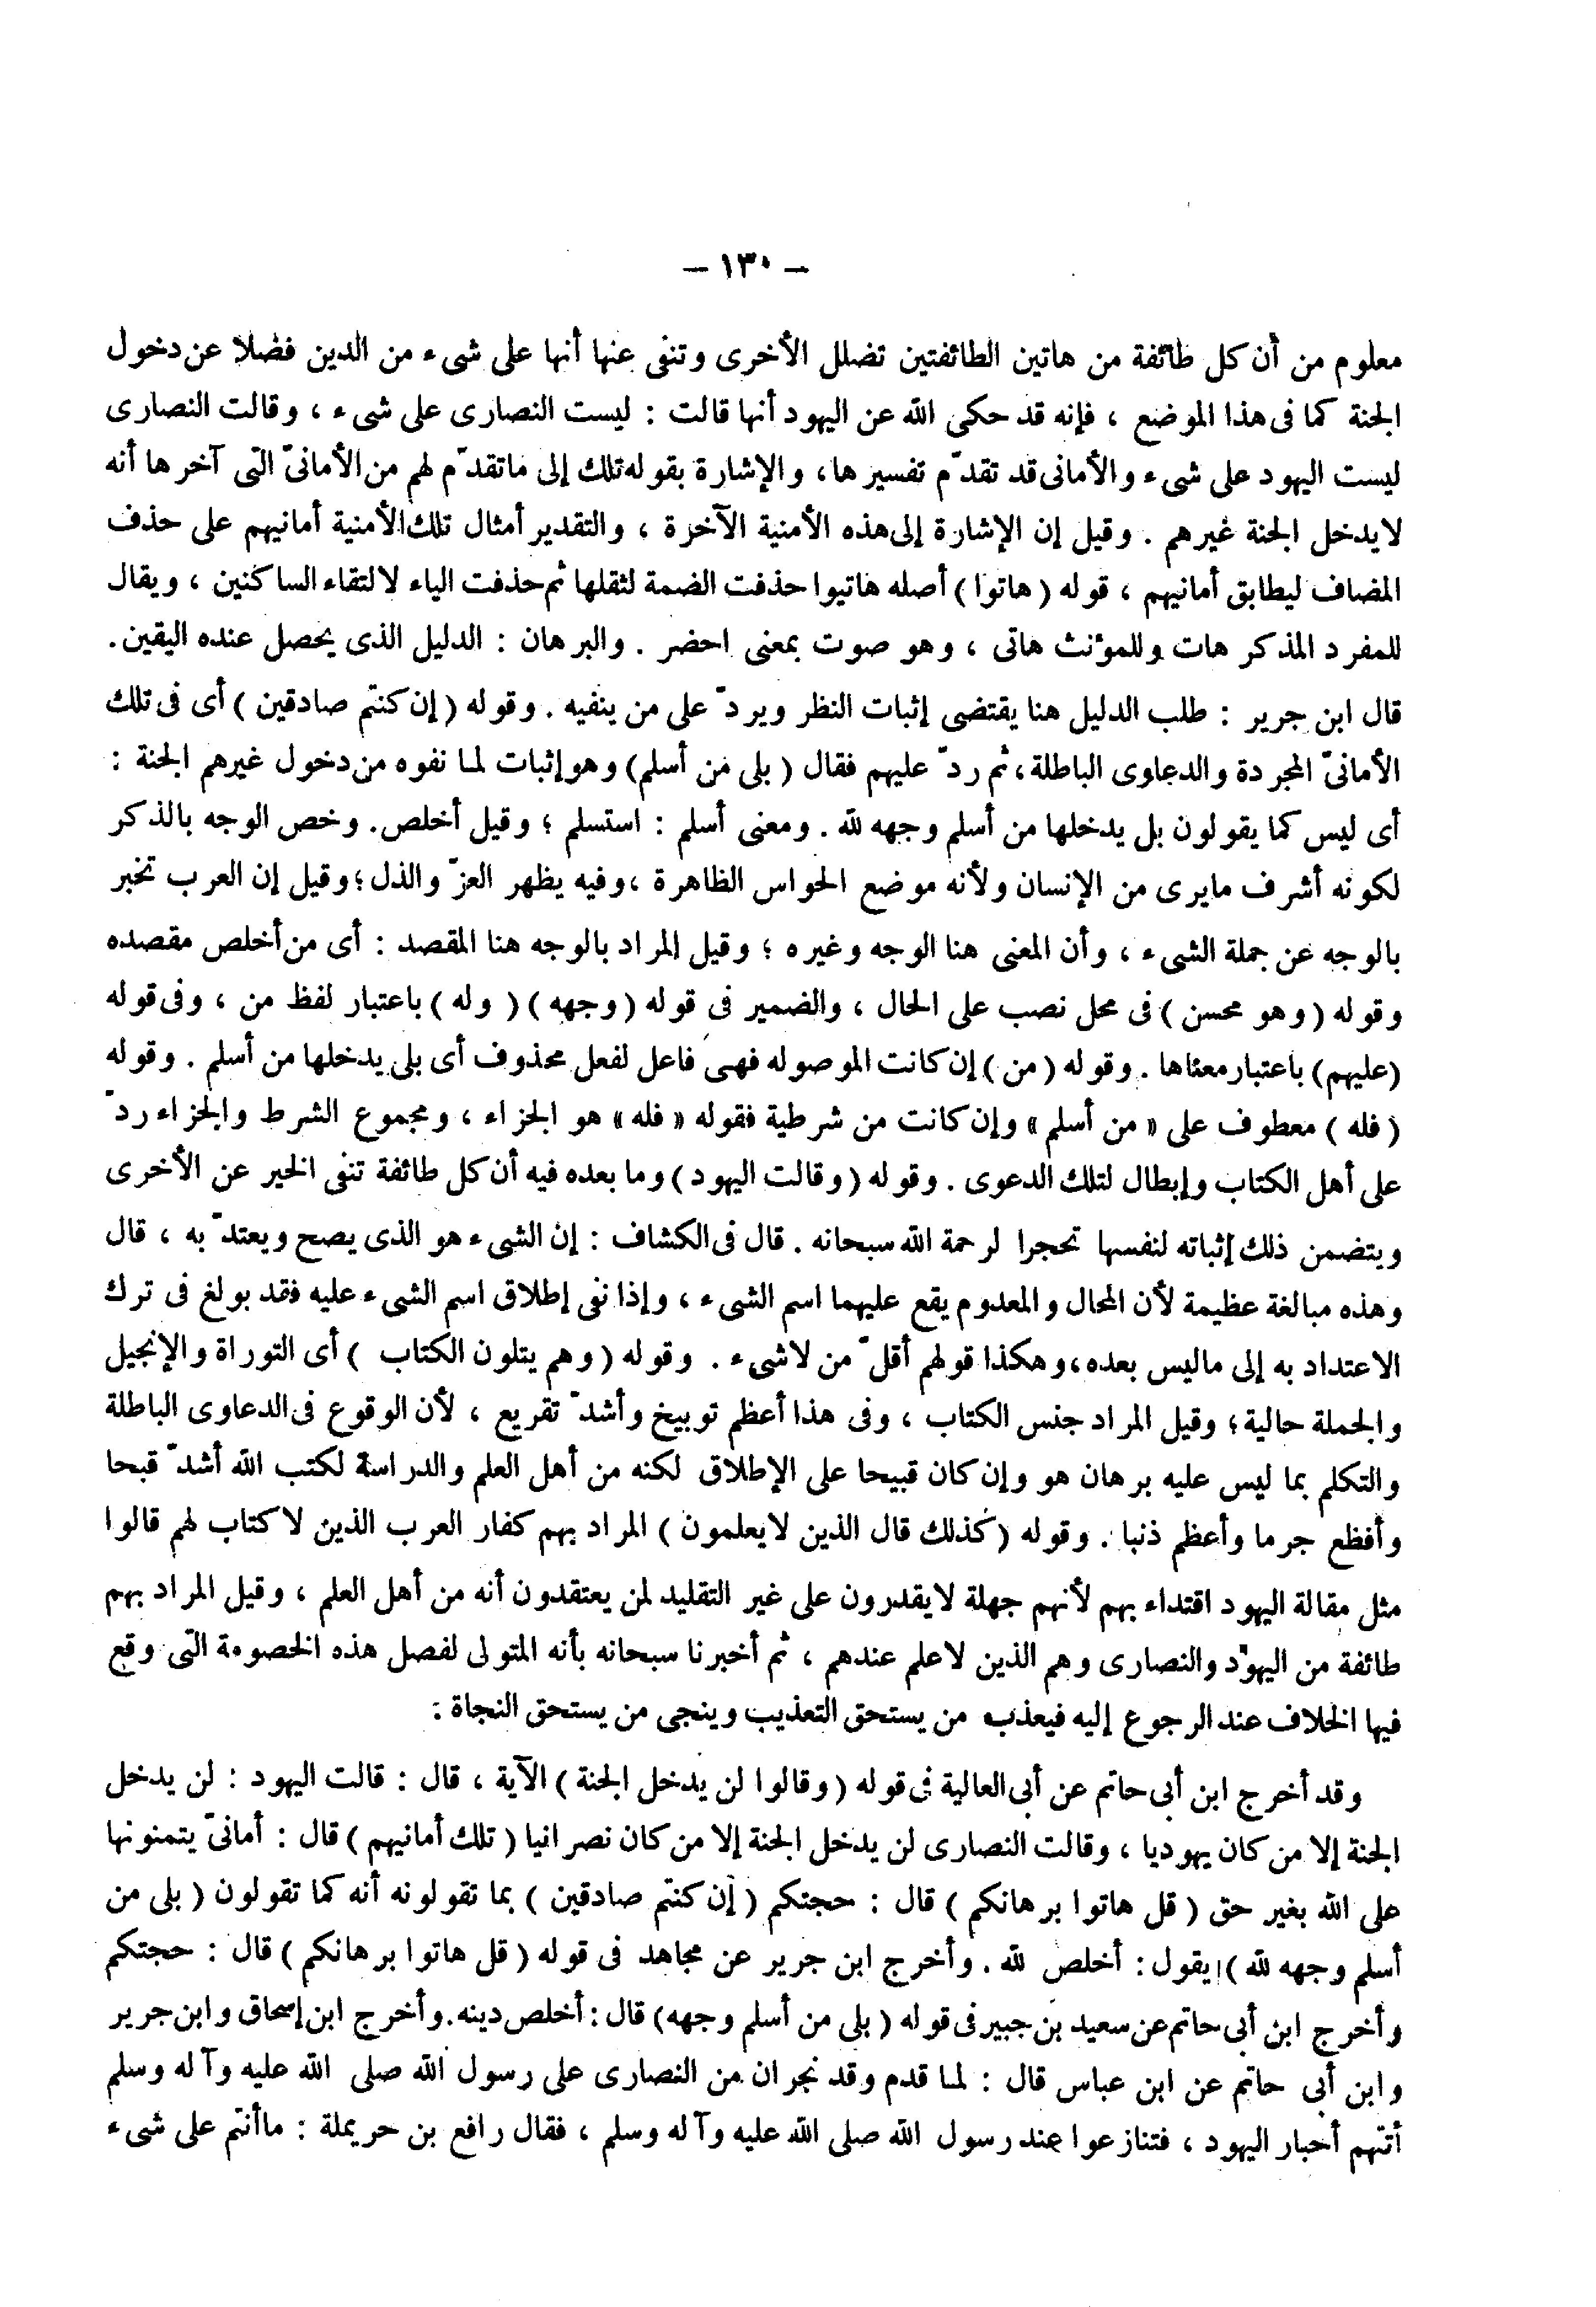 – ١٣٠ –
معلوم من أن كل طائفة من هاتين الطائفتين تضلل الأخرى وتنفى عنها أنها على شىء من الدين فضلا عن دخول
الجنة كما فى هذا الموضع ، فإنه قد حكى الله عن اليهود أنها قالت : ليست النصارى على شىء ، وقالت النصارى
ليست اليهود على شىء والأمانى قد تقدّم تفسيرها، والإشارة بقوله تلك إلى ماتقدّم لهم من الأمانىّ التى آخرها أنه
لايدخل الجنة غيرهم . وقيل إن الإشارة إلى هذه الأمنية الآخرة ، والتقدير أمثال تلك الأمنية أمانيهم على حذف
المضاف ليطابق أمانيهم ، قوله ( هاتوا ) أصله هاتيوا حذفت الضمة لثقلها ثم حذفت الياء لالتقاء الساكنين ، ويقال
للمفرد المذكر هات وللمؤنث هاتى ، وهو صوت بمعنى احضر . والبرهان : الدليل الذى يحصل عنده اليقين.
قال ابن جرير : طلب الدليل هنا يقتضى إثبات النظر ويردّ على من ينفيه . وقوله ( إن كنتم صادقين ) أى فى تلك
الأمانىّ المجردة والدعاوى الباطلة، ثم ردّ عليهم فقال ( بلى من أسلم) وهو إثبات لما نفوه من دخول غيرهم الجنة :
أى ليس كما يقولون بل يدخلها من أسلم وجهه لله . ومعنى أسلم : استسلم ؛ وقيل أخلص. وخص الوجه بالذكر
لكونه أشرف مايرى من الإنسان ولأنه موضع الحواس الظاهرة ،وفيه يظهر العزّ والذل ؛وقيل إن العرب تخبر
بالوجه عن جملة الشىء ، وأن المعنى هنا الوجه وغيره ؛ وقيل المراد بالوجه هنا المقصد : أى من أخلص مقصده
وقوله ( وهو محسن ) فى محل نصب على الحال ، والضمير فى قوله ( وجهه ) ( وله ) باعتبار لفظ من ، وفى قوله
(عليهم) باعتبار معناها . وقوله ( من ) إن كانت الموصوله فهى فاعل لفعل محذوف أى بلى يدخلها من أسلم . وقوله
( فله ) معطوف على « من أسلم » وإن كانت من شرطية فقوله « فله » هو الجزاء ، ومجموع الشرط والجزاء ردّ
على أهل الكتاب وإبطال لتلك الدعوى . وقوله ( وقالت اليهود ) وما بعده فيه أن كل طائفة تنفى الخير عن الأخرى
ويتضمن ذلك إثباته لنفسها تحجرا لرحمة الله سبحانه . قال فى الكشاف : إن الشىء هو الذى يصح ويعتدّ به ، قال
وهذه مبالغة عظيمة لأن المحال والمعدوم يقع عليهما اسم الشىء ، وإذا نفى إطلاق اسم الشىء عليه فقد بولغ فى ترك
الاعتداد به إلى ماليس بعده، وهكذا قولهم أقلّ من لاشىء . وقوله ( وهم يتلون الكتاب ) أى التوراة والإنجيل
والجملة حالية ؛ وقيل المراد جنس الكتاب ، وفى هذا أعظم توبيخ وأشدّ تقريع ، لأن الوقوع فى الدعاوى الباطلة
والتكلم بما ليس عليه برهان هو وإن كان قبيحا على الإطلاق لكنه من أهل العلم والدراسة لكتب الله أشدّ قبحا
وأفظع جرما وأعظم ذنبا . وقوله ( كذلك قال الذين لايعلمون ) المراد بهم كفار العرب الذين لا كتاب لهم قالوا
مثل مقالة اليهود اقتداء بهم لأنهم جهلة لايقدرون على غير التقليد لمن يعتقدون أنه من أهل العلم ، وقيل المراد بهم
طائفة من اليهود والنصارى وهم الذين لاعلم عندهم ، ثم أخبرنا سبحانه بأنه المتولى لفصل هذه الخصومة التى وقع
فيها الخلاف عند الرجوع إليه فيعذب من يستحق التعذيب وينجى من يستحق النجاة :
وقد أخرج ابن أبى حاتم عن أبى العالية فى قوله ( وقالوا لن يدخل الجنة ) الآية ، قال : قالت اليهود : لن يدخل
الجنة إلا من كان يهوديا ، وقالت النصارى لن يدخل الجنة إلا من كان نصرانيا ( تلك أمانيهم ) قال : أمانىّ يتمنونها
على الله بغير حق ( قل هاتوا برهانكم ) قال : حجتكم ( إن كنتم صادقين ) بما تقولونه أنه كما تقولون ( بلى من
أسلم وجهه لله ) يقول : أخلص لله . وأخرج ابن جرير عن مجاهد فى قوله ( قل هاتوا برهانكم ) قال : حجتكم
وأخرج ابن أبى حاتم عن سعيد بن جبير فى قوله ( بلى من أسلم وجهه) قال : أخلص دينه. وأخرج ابن إسحاق وابن جرير
وابن أبى حاتم عن ابن عباس قال : لما قدم وفد نجران من النصارى على رسول الله صلى الله عليه وآله وسلم
أتتهم أحبار اليهود ، فتنازعوا عند رسول الله صلى الله عليه وآله وسلم ، فقال رافع بن حريملة : ماأنتم على شىء